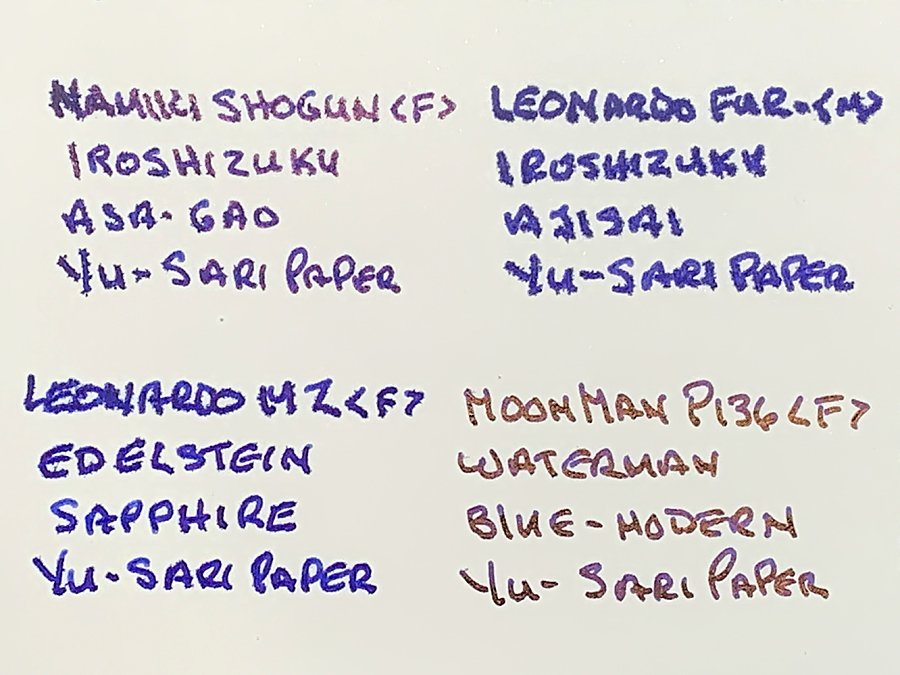 NAMIKI SHOGUN <F>
IROSHIZUKU
ASA-GAO
YU-SARI PAPER
LEONARDO FUR.<M>
IROSHIZUKU
AJISAI
YU-SARI PAPER
LEONARDO MZ <F>
EDELSTEIN
SAPPHIRE
YU-SARI PAPER
MOONMAN P136 <F>
WATERMAN
BLUE-MODERN
YU-SARI PAPER